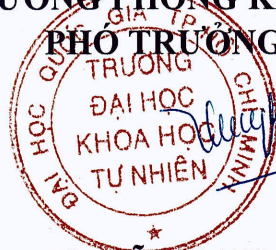 PHÓ TRƯỞNG
ĐẠI HỌC QUỐC GIA TP. CHÍ MINH
TRƯỜNG
ĐẠI HỌC
KHOA HỌC
TỰ NHIÊN